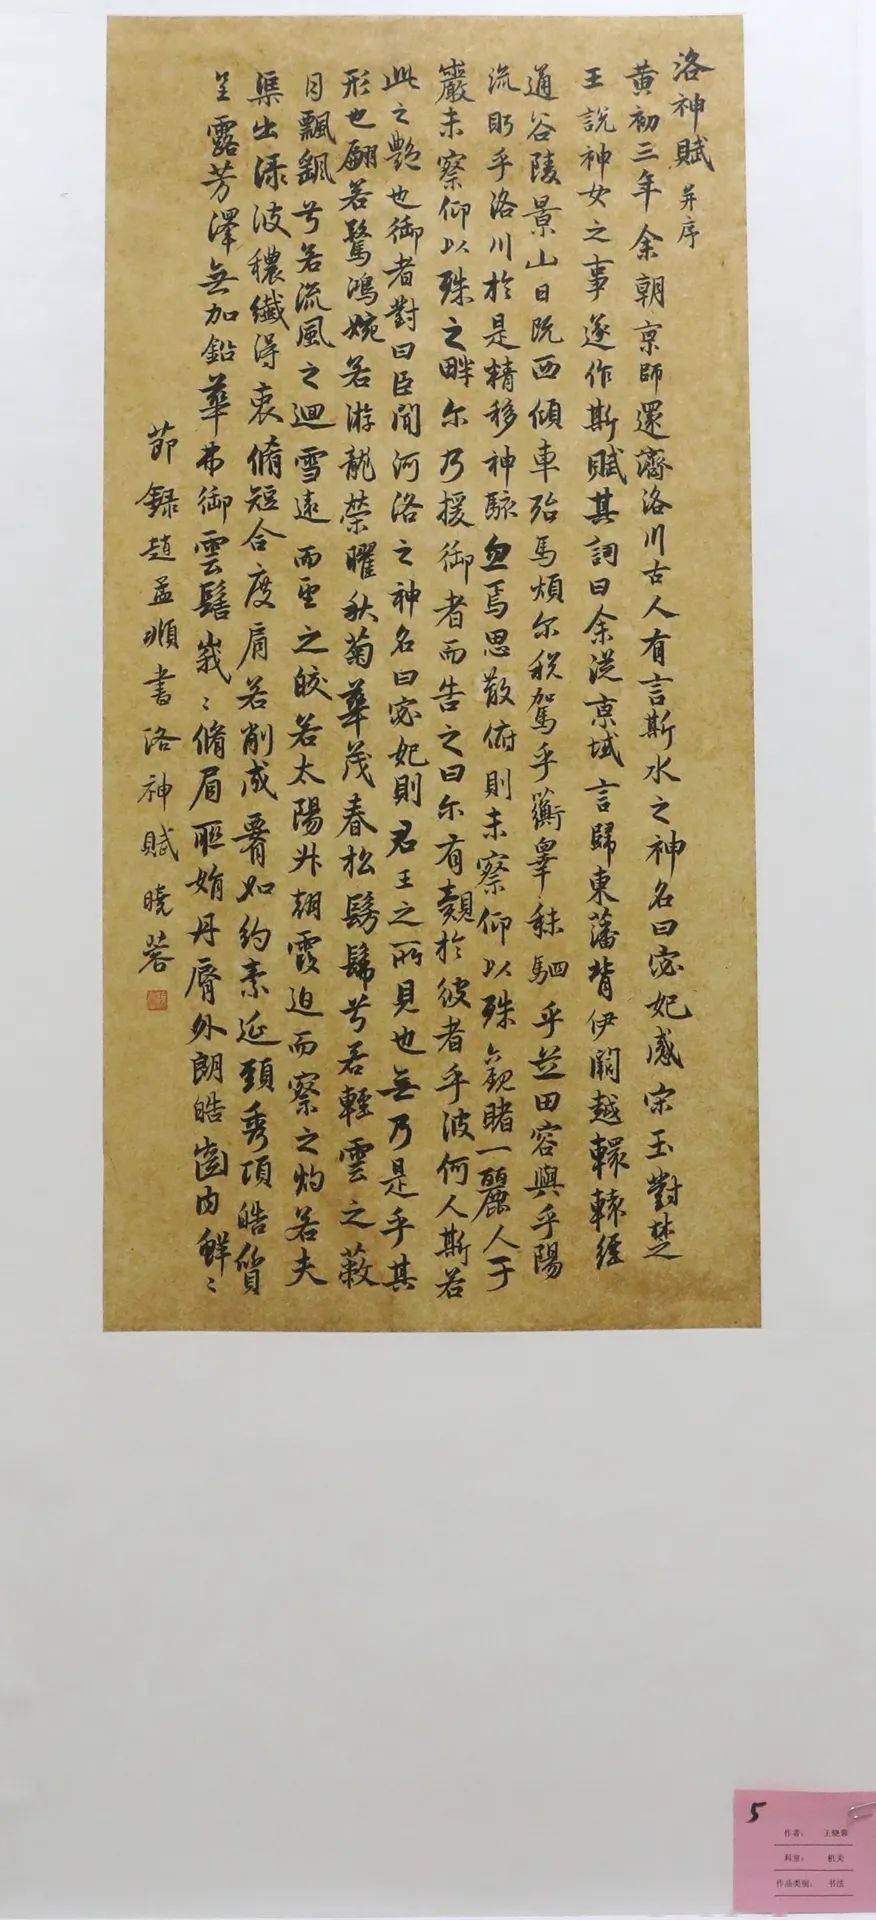 洛神賦并序
黄初三年余朝京師還濟洛川古人有言斯水之神名曰宓妃感宋玉對楚
王說神女之事遂作斯賦其詞曰余從京域言歸東藩背伊闕越轘轅經
通谷陵景山日既西傾車殆馬煩尔稅駕乎蘅皋秣駟乎芝田容與乎陽
流眄乎洛川於是精移神駭忽焉思散俯則未察仰以殊觀睹一麗人于
巖未察仰以殊之畔尔乃援御者而告之曰尔有覿於彼者乎彼何人斯若
此之艷也御者對曰臣聞河洛之神名曰宓妃則君王之所見也無乃是乎其
形也翩若驚鴻婉若游龍榮曜秋菊華茂春松髣髴兮若輕雲之蔽
月飄颻兮若流風之迴雪遠而望之皎若太陽升朝霞迫而察之灼若夫
渠出淥波穠纖得衷脩短合度肩若削成腰如約素延頸秀項皓質
呈露芳澤無加鉛華弗御雲髻峩〻脩眉聯娟丹脣外朗皓齒内鮮〻
節録趙孟順書洛神賦曉蓉
5
作者： 王晓蓉
科室： 机关
作品类别： 书法